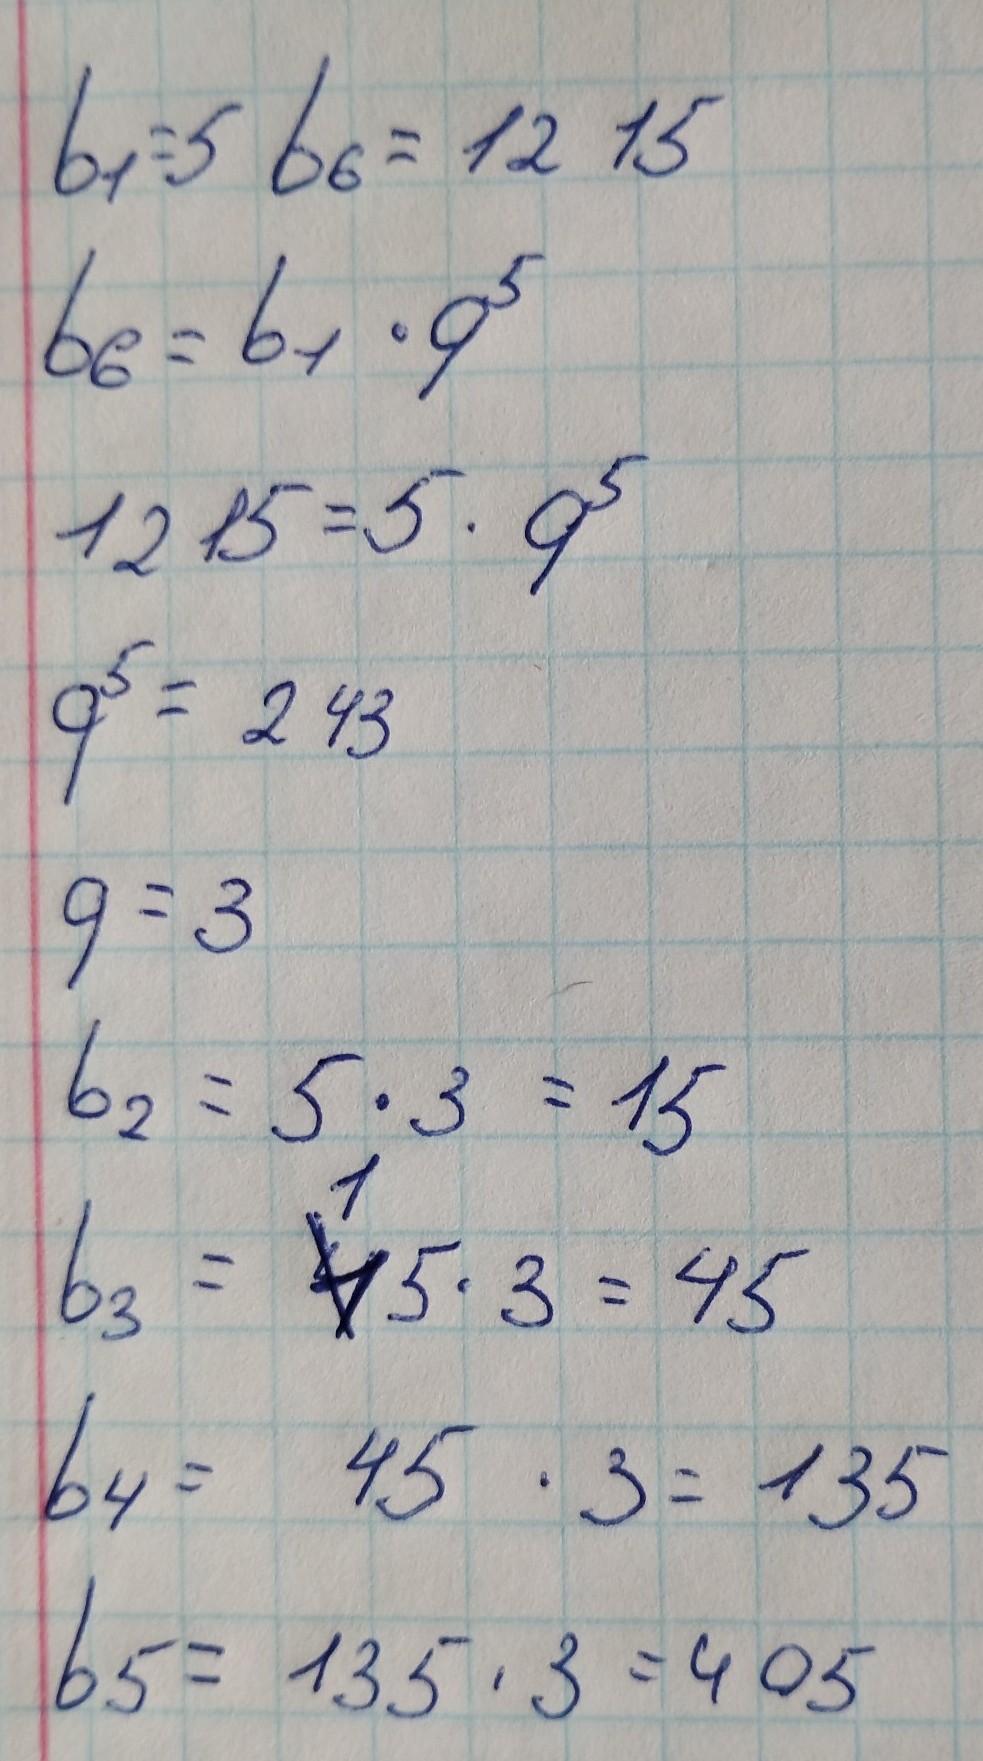 b₁=5 b₆= 1215
b₆ = b₁ · q⁵
1215 = 5 · q⁵
q⁵ = 243
q = 3
b₂ = 5 · 3 = 15
b₃ = 15 · 3 = 45
b₄ = 45 · 3 = 135
b₅ = 135 · 3 = 405